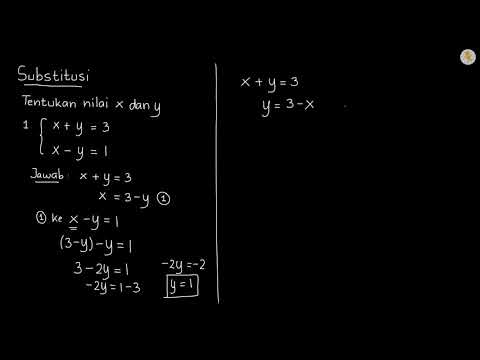 Substitusi
Tentukan nilai x dan y
1. { x + y = 3
x - y = 1
Jawab: x + y = 3
x = 3 - y ①
① ke x - y = 1
(3-y) - y = 1
3 - 2y = 1
-2y = 1 - 3
-2y = -2
y = 1
x + y = 3
y = 3 - x